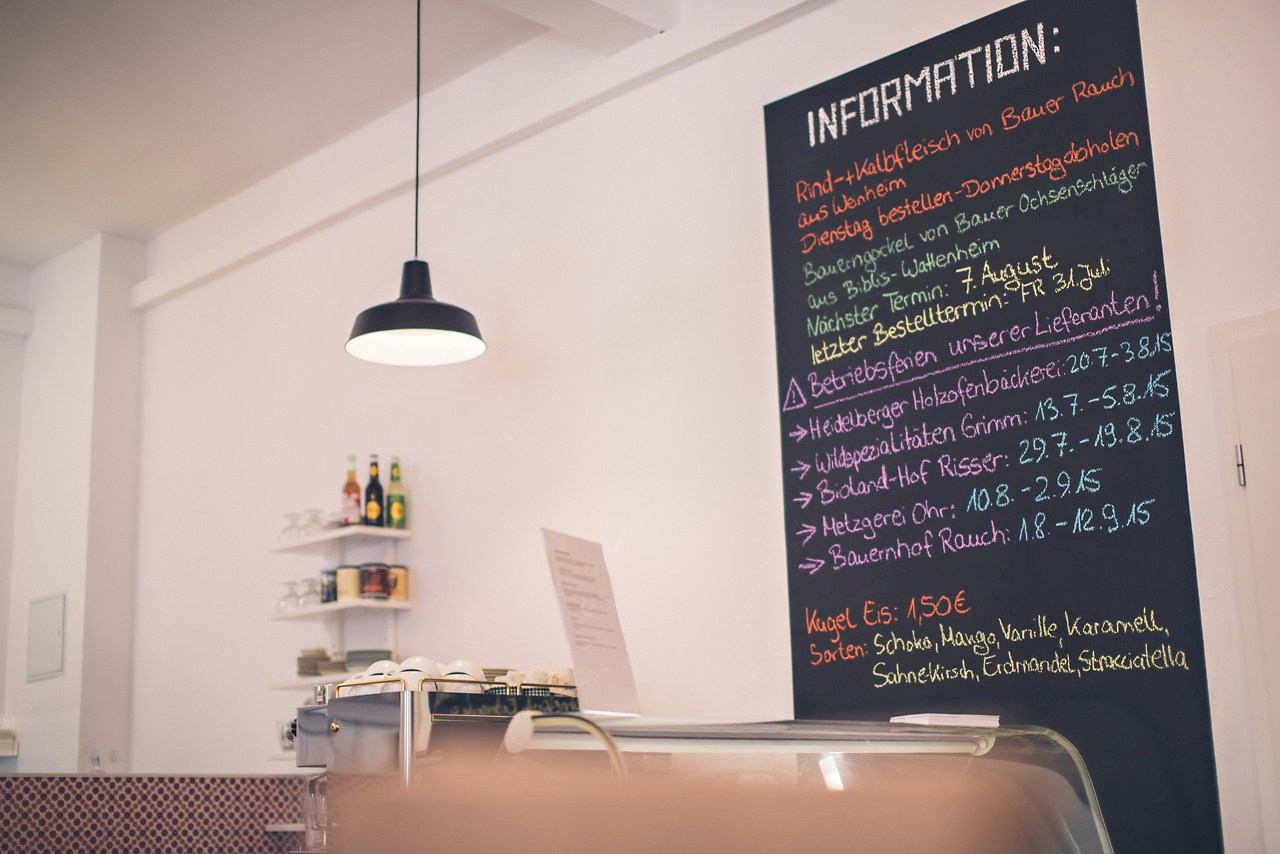 INFORMATION:
Rind-+Kalbfleisch von Bauer Rauch
aus Weinheim
Dienstag bestellen-Donnerstag abholen
Bauerngockel von Bauer Ochsenschläger
aus Biblis-Wattenheim
Nächster Termin: 7. August
letzter Bestelltermin: FR 31. Juli
Betriebsferien unserer Lieferanten!
→ Heidelberger Holzofenbäckerei: 20.7-3.8.15
→ Wildspezialitäten Grimm: 13.7.-5.8.15
→ Bioland-Hof Risser: 29.7.-19.8.15
→ Metzgerei Ohr: 10.8.-2.9.15
→ Bauernhof Rauch: 1.8.-12.9.15
Kugel Eis: 1,50€
Sorten: Schoko, Mango, Vanille, Karamell,
Sahnekirsch, Erdmandel, Stracciatella